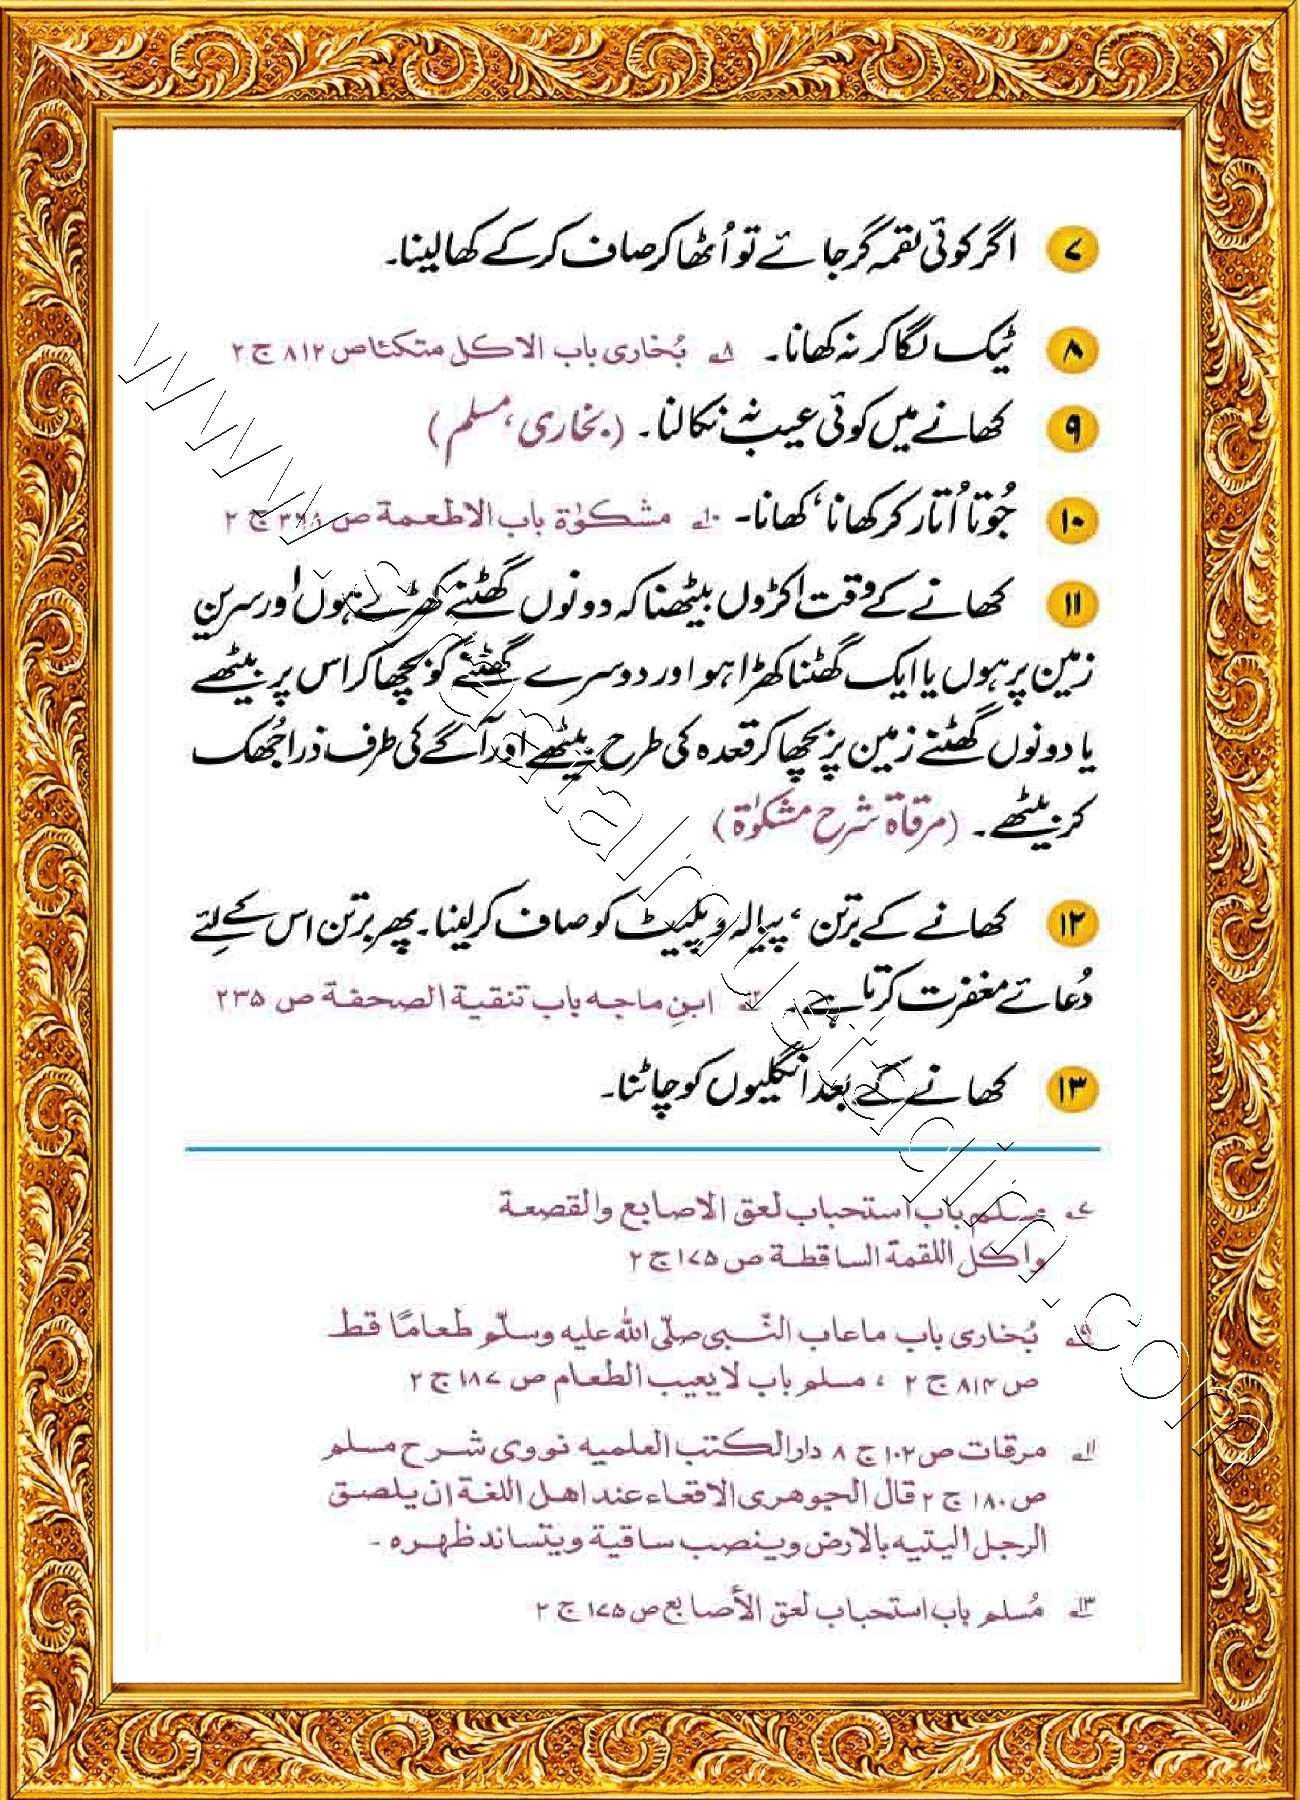 ۷ اگر کوئی لقمہ گر جائے تو اُٹھا کر صاف کر کے کھا لینا۔
۸ ٹیک لگا کر نہ کھانا۔ ۸ بُخاری باب الاکل متکئا ص ۸۱۲ ج ۲
۹ کھانے میں کوئی عیب نہ نکالنا۔ (بخاری، مسلم)
۱۰ جُوتا اُتار کر کھانا، کھانا۔ ۱۰ مشکوٰة باب الاطعمة ص ۳۶۸ ج ۲
۱۱ کھانے کے وقت اکڑوں بیٹھنا کہ دونوں گھٹنے کھڑے ہوں اور سرین
زمین پر ہوں یا ایک گھٹنا کھڑا ہو اور دوسرے گھٹنے کو بچھا کر اس پر بیٹھے
یا دونوں گھٹنے زمین پر بچھا کر قعدہ کی طرح بیٹھے اور آگے کی طرف ذرا جُھک
کر بیٹھے۔ (مرقاة شرح مشکوٰة)
۱۲ کھانے کے برتن، پیالہ و پلیٹ کو صاف کر لینا۔ پھر برتن اس کے لِئے
دُعائے مغفرت کرتا ہے۔ ۱۲ ابنِ ماجہ باب تنقیة الصحفة ص ۲۳۵
۱۳ کھانے کے بعد انگلیوں کو چاٹنا۔
۷ مسلم باب استحباب لعق الاصابع والقصعة
واکل اللقمة الساقطة ص ۱۷۵ ج ۲
۹ بُخاری باب ماعاب النّبی صلّی اللہ علیہ وسلّم طعامًا قط
ص ۸۱۴ ج ۲ ، مسلم باب لایعیب الطعام ص ۱۸۷ ج ۲
۱۱ مرقات ص ۱۰۲ ج ۸ دارالکتب العلمیہ نووی شرح مسلم
ص ۱۸۰ ج ۲ قال الجوھری الاقعاء عند اھل اللغة ان یلصق
الرجل الیتیہ بالارض وینصب ساقیة ویتساند ظھرہ۔
۱۳ مُسلم باب استحباب لعق الأصابع ص ۱۷۵ ج ۲